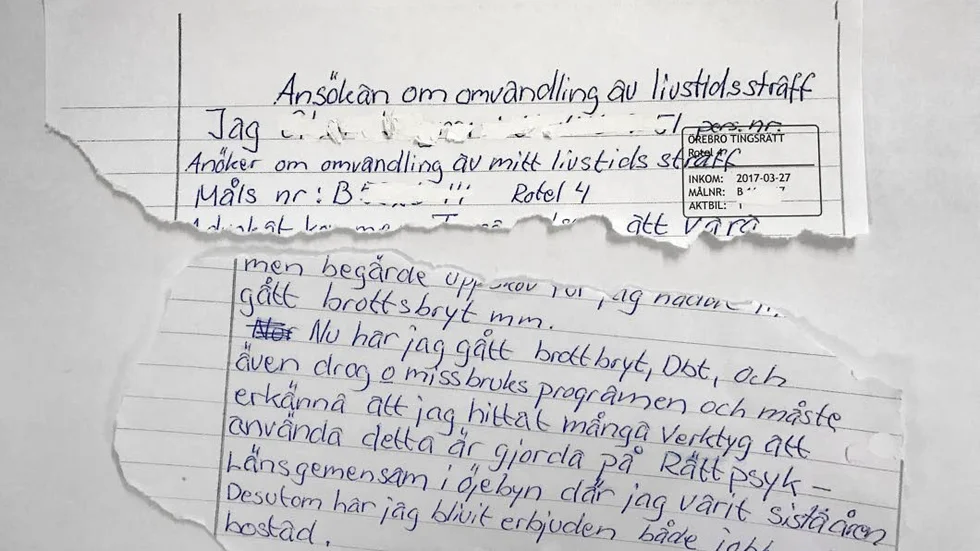 Ansökan om omvandling av livstidsstraff
Jag pers.nr.
Anöker om omvandling av mitt livstids straff
Måls nr: B Rotel 4
att vara
ÖREBRO TINGSRÄTT
INKOM: 2017-03-27
MÅLNR: B 7
AKTBIL:
men begärde jag
gått brottsbryt mm.
Nu har jag gått brottbryt, Dbt, och
även drog o missbruks programen och måste
erkänna att jag hittat många verktyg att
använda detta är gjorda på Rättpsyk -
Länsgemensam i öjebyn där jag varit sista åren
Desutom har jag blivit erbjuden både
bostad.